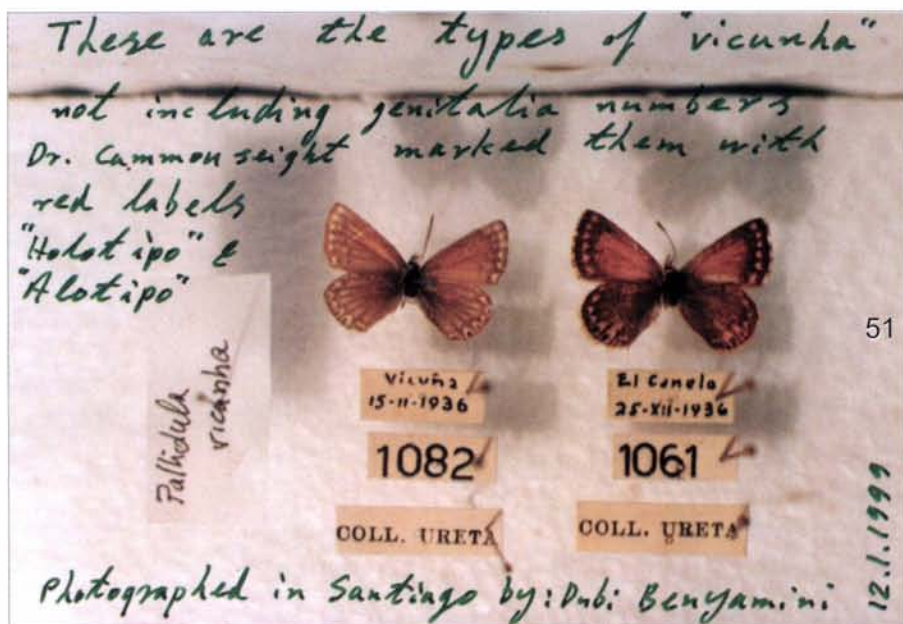 These are the types of "vicunha"
not including genitalia numbers
Dr. Cammonseight marked them with
red labels
"Holotipo" &
"Alotipo"
Pallidula
vicunha
Vicuña
15-11-1936
1082
COLL. URETA
El Canela
25-XII-1936
1061
COLL. URETA
51
12.1.1999
Photographed in Santiago by: Dubi Benyamini